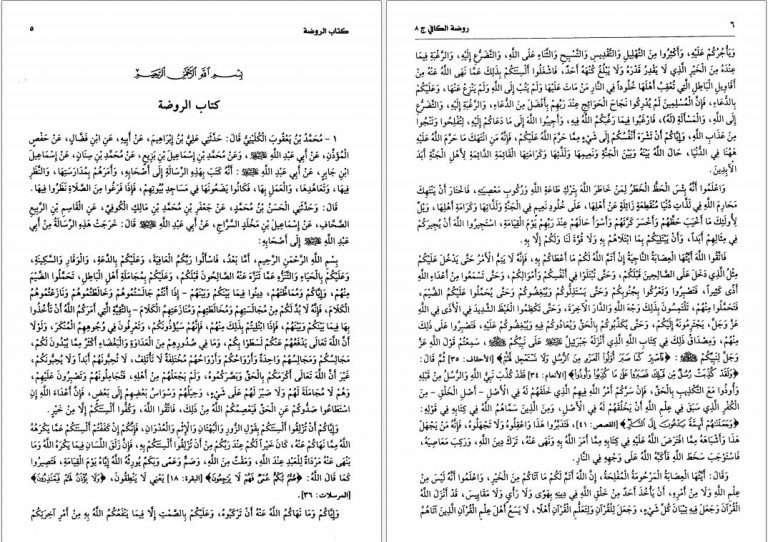 كتاب الروضة ٥
بِسْمِ اللَّهِ الرَّحْمَنِ الرَّحِيمِ
كتاب الروضة
١ - مُحَمَّدُ بْنُ يَعْقُوبَ الْكُلَيْنِيُّ قَالَ: حَدَّثَنِي عَلِيُّ بْنُ إِبْرَاهِيمَ، عَنْ أَبِيهِ، عَنِ ابْنِ فَضَّالٍ، عَنْ حَفْصٍ
الْمُؤَذِّنِ، عَنْ أَبِي عَبْدِ اللَّهِ، وَعَنْ مُحَمَّدِ بْنِ إِسْمَاعِيلَ بْنِ بَزِيعٍ، عَنْ مُحَمَّدِ بْنِ سِنَانٍ، عَنْ إِسْمَاعِيلَ
ابْنِ جَابِرٍ، عَنْ أَبِي عَبْدِ اللَّهِ: أَنَّهُ كَتَبَ بِهَذِهِ الرِّسَالَةِ إِلَى أَصْحَابِهِ، وَأَمَرَهُمْ بِمُدَارَسَتِهَا، وَالنَّظَرِ
فِيهَا، وَتَعَاهُدِهَا، وَالْعَمَلِ بِهَا، فَكَانُوا يَضَعُونَهَا فِي مَسَاجِدِ بُيُوتِهِمْ، فَإِذَا فَرَغُوا مِنَ الصَّلَاةِ نَظَرُوا فِيهَا.
قَالَ: وَحَدَّثَنِي الْحَسَنُ بْنُ مُحَمَّدٍ، عَنْ جَعْفَرِ بْنِ مُحَمَّدِ بْنِ مَالِكٍ الْكُوفِيِّ، عَنِ الْقَاسِمِ بْنِ الرَّبِيعِ
الصَّحَّافِ، عَنْ إِسْمَاعِيلَ بْنِ مَخْلَدٍ السَّرَّاجِ، عَنْ أَبِي عَبْدِ اللَّهِ قَالَ: خَرَجَتْ هَذِهِ الرِّسَالَةُ مِنْ أَبِي
عَبْدِ اللَّهِ إِلَى أَصْحَابِهِ:
بِسْمِ اللَّهِ الرَّحْمَنِ الرَّحِيمِ، أَمَّا بَعْدُ، فَاسْأَلُوا رَبَّكُمُ الْعَافِيَةَ، وَعَلَيْكُمْ بِالدَّعَةِ، وَالْوَقَارِ وَالسَّكِينَةِ،
وَعَلَيْكُمْ بِالْحَيَاءِ وَالتَّنَزُّهِ عَمَّا تَنَزَّهَ عَنْهُ الصَّالِحُونَ قَبْلَكُمْ، وَعَلَيْكُمْ بِمُجَامَلَةِ أَهْلِ الْبَاطِلِ، تَحَمَّلُوا الضَّيْمَ
مِنْهُمْ، وَإِيَّاكُمْ وَمُمَاظَّتَهُمْ، دِينُوا فِيمَا بَيْنَكُمْ وَبَيْنَهُمْ - إِذَا أَنْتُمْ جَالَسْتُمُوهُمْ وَخَالَطْتُمُوهُمْ وَنَازَعْتُمُوهُمُ
الْكَلَامَ، فَإِنَّهُ لَا بُدَّ لَكُمْ مِنْ مُجَالَسَتِهِمْ وَمُخَالَطَتِهِمْ وَمُنَازَعَتِهِمُ الْكَلَامَ - بِالتَّقِيَّةِ الَّتِي أَمَرَكُمُ اللَّهُ أَنْ تَأْخُذُوا
بِهَا فِيمَا بَيْنَكُمْ وَبَيْنَهُمْ، فَإِذَا ابْتُلِيتُمْ بِذَلِكَ مِنْهُمْ، فَإِنَّهُمْ سَيُؤْذُونَكُمْ، وَتَعْرِفُونَ فِي وُجُوهِهِمُ الْمُنْكَرَ، وَلَوْلَا
أَنَّ اللَّهَ تَعَالَى يَدْفَعُهُمْ عَنْكُمْ لَسَطَوْا بِكُمْ، وَمَا فِي صُدُورِهِمْ مِنَ الْعَدَاوَةِ وَالْبَغْضَاءِ أَكْثَرُ مِمَّا يُبْدُونَ لَكُمْ،
مَجَالِسُكُمْ وَمَجَالِسُهُمْ وَاحِدَةٌ وَأَرْوَاحُكُمْ وَأَرْوَاحُهُمْ مُخْتَلِفَةٌ لَا تَأْتَلِفُ، لَا تُحِبُّونَهُمْ أَبَداً وَلَا يُحِبُّونَكُمْ،
غَيْرَ أَنَّ اللَّهَ تَعَالَى أَكْرَمَكُمْ بِالْحَقِّ وَبَصَّرَكُمُوهُ، وَلَمْ يَجْعَلْهُمْ مِنْ أَهْلِهِ، فَتُجَامِلُونَهُمْ وَتَصْبِرُونَ عَلَيْهِمْ،
وَهُمْ لَا مُجَامَلَةَ لَهُمْ وَلَا صَبْرَ لَهُمْ عَلَى شَيْءٍ، وَحِيَلُهُمْ وَسْوَاسُ بَعْضِهِمْ إِلَى بَعْضٍ، فَإِنَّ أَعْدَاءَ اللَّهِ إِنِ
اسْتَطَاعُوا صَدُّوكُمْ عَنِ الْحَقِّ فَيَعْصِمُكُمُ اللَّهُ مِنْ ذَلِكَ، فَاتَّقُوا اللَّهَ، وَكُفُّوا أَلْسِنَتَكُمْ إِلَّا مِنْ خَيْرٍ.
وَإِيَّاكُمْ أَنْ تُزْلِقُوا أَلْسِنَتَكُمْ بِقَوْلِ الزُّورِ وَالْبُهْتَانِ وَالْإِثْمِ وَالْعُدْوَانِ، فَإِنَّكُمْ إِنْ كَفَفْتُمْ أَلْسِنَتَكُمْ عَمَّا يَكْرَهُهُ
اللَّهُ مِمَّا نَهَاكُمْ عَنْهُ، كَانَ خَيْراً لَكُمْ عِنْدَ رَبِّكُمْ مِنْ أَنْ تُزْلِقُوا أَلْسِنَتَكُمْ بِهِ، فَإِنَّ زَلَقَ اللِّسَانِ فِيمَا يَكْرَهُ اللَّهُ وَمَا
يَنْهَى عَنْهُ مَرْدَاةٌ لِلْعَبْدِ عِنْدَ اللَّهِ، وَمَقْتٌ مِنَ اللَّهِ، وَصَمٌّ وَعَمًى وَبَكَمٌ يُورِثُهُ اللَّهُ إِيَّاهُ يَوْمَ الْقِيَامَةِ، فَتَصِيرُوا
كَمَا قَالَ اللَّهُ: ﴿صُمٌّ بُكْمٌ عُمْيٌ فَهُمْ لَا يَرْجِعُونَ﴾ [البقرة: ١٨] يَعْنِي لَا يَنْطِقُونَ، ﴿وَلَا يُؤْذَنُ لَهُمْ فَيَعْتَذِرُونَ﴾
[المرسلات: ٣٦].
وَإِيَّاكُمْ وَمَا نَهَاكُمُ اللَّهُ عَنْهُ أَنْ تَرْكَبُوهُ، وَعَلَيْكُمْ بِالصَّمْتِ إِلَّا فِيمَا يَنْفَعُكُمُ اللَّهُ بِهِ مِنْ أَمْرِ آخِرَتِكُمْ
٦ روضة الكافي ج ٨
وَيَأْجُرُكُمْ عَلَيْهِ، وَأَكْثِرُوا مِنَ التَّهْلِيلِ وَالتَّقْدِيسِ وَالتَّسْبِيحِ وَالثَّنَاءِ عَلَى اللَّهِ، وَالتَّضَرُّعِ إِلَيْهِ، وَالرَّغْبَةِ فِيمَا
عِنْدَهُ مِنَ الْخَيْرِ الَّذِي لَا يَقْدِرُ قَدْرَهُ وَلَا يَبْلُغُ كُنْهَهُ أَحَدٌ، فَاشْغَلُوا أَلْسِنَتَكُمْ بِذَلِكَ عَمَّا نَهَى اللَّهُ عَنْهُ مِنْ
أَقَاوِيلِ الْبَاطِلِ الَّتِي تُعْقِبُ أَهْلَهَا خُلُوداً فِي النَّارِ مَنْ مَاتَ عَلَيْهَا وَلَمْ يَتُبْ إِلَى اللَّهِ وَلَمْ يَنْزِعْ عَنْهَا، وَعَلَيْكُمْ
بِالدُّعَاءِ، فَإِنَّ الْمُسْلِمِينَ لَمْ يُدْرِكُوا نَجَاحَ الْحَوَائِجِ عِنْدَ رَبِّهِمْ بِأَفْضَلَ مِنَ الدُّعَاءِ، وَالرَّغْبَةِ إِلَيْهِ، وَالتَّضَرُّعِ
إِلَى اللَّهِ، وَالْمَسْأَلَةِ [لَهُ]، فَارْغَبُوا فِيمَا رَغَّبَكُمُ اللَّهُ فِيهِ، وَأَجِيبُوا اللَّهَ إِلَى مَا دَعَاكُمْ إِلَيْهِ، لِتُفْلِحُوا وَتَنْجُوا
مِنْ عَذَابِ اللَّهِ، وَإِيَّاكُمْ أَنْ تَشْرَهَ أَنْفُسُكُمْ إِلَى شَيْءٍ مِمَّا حَرَّمَ اللَّهُ عَلَيْكُمْ، فَإِنَّهُ مَنِ انْتَهَكَ مَا حَرَّمَ اللَّهُ عَلَيْهِ
هَهُنَا فِي الدُّنْيَا، حَالَ اللَّهُ بَيْنَهُ وَبَيْنَ الْجَنَّةِ وَنَعِيمِهَا وَلَذَّتِهَا وَكَرَامَتِهَا الْقَائِمَةِ الدَّائِمَةِ لِأَهْلِ الْجَنَّةِ أَبَدَ
الْآبِدِينَ.
وَاعْلَمُوا أَنَّهُ بِئْسَ الْحَظُّ الْخَطَرُ لِمَنْ خَاطَرَ اللَّهَ بِتَرْكِ طَاعَةِ اللَّهِ وَرُكُوبِ مَعْصِيَتِهِ، فَاخْتَارَ أَنْ يَنْتَهِكَ
مَحَارِمَ اللَّهِ فِي لَذَّاتِ دُنْيَا مُنْقَطِعَةٍ زَائِلَةٍ عَنْ أَهْلِهَا، عَلَى خُلُودِ نَعِيمٍ فِي الْجَنَّةِ وَلَذَّاتِهَا وَكَرَامَةِ أَهْلِهَا، وَيْلٌ
لِأُولَئِكَ مَا أَخْيَبَ حَظَّهُمْ وَأَخْسَرَ كَرَّتَهُمْ وَأَسْوَأَ حَالَهُمْ عِنْدَ رَبِّهِمْ يَوْمَ الْقِيَامَةِ، اسْتَجِيرُوا اللَّهَ أَنْ يُجِيرَكُمْ
فِي مِثَالِهِمْ أَبَداً، وَأَنْ يَبْتَلِيَكُمْ بِمَا ابْتَلَاهُمْ بِهِ وَلَا قُوَّةَ لَنَا وَلَكُمْ إِلَّا بِهِ.
فَاتَّقُوا اللَّهَ أَيَّتُهَا الْعِصَابَةُ النَّاجِيَةُ إِنْ أَتَمَّ اللَّهُ لَكُمْ مَا أَعْطَاكُمْ بِهِ، فَإِنَّهُ لَا يَتِمُّ الْأَمْرُ حَتَّى يَدْخُلَ عَلَيْكُمْ
مِثْلُ الَّذِي دَخَلَ عَلَى الصَّالِحِينَ قَبْلَكُمْ، وَحَتَّى تُبْتَلَوْا فِي أَنْفُسِكُمْ وَأَمْوَالِكُمْ، وَحَتَّى تَسْمَعُوا مِنْ أَعْدَاءِ اللَّهِ
أَذًى كَثِيراً، فَتَصْبِرُوا وَتَعْرُكُوا بِجُنُوبِكُمْ وَحَتَّى يَسْتَذِلُّوكُمْ وَيُبْغِضُوكُمْ وَحَتَّى يُحَمِّلُوا عَلَيْكُمُ الضَّيْمَ،
فَتَحَمَّلُوا مِنْهُمْ، تَلْتَمِسُونَ بِذَلِكَ وَجْهَ اللَّهِ وَالدَّارَ الْآخِرَةَ، وَحَتَّى تَكْظِمُوا الْغَيْظَ الشَّدِيدَ فِي الْأَذَى فِي اللَّهِ
عَزَّ وَجَلَّ، يَجْتَرِمُونَهُ إِلَيْكُمْ، وَحَتَّى يُكَذِّبُوكُمْ بِالْحَقِّ وَيُعَادُوكُمْ فِيهِ وَيُبْغِضُوكُمْ عَلَيْهِ، فَتَصْبِرُوا عَلَى ذَلِكَ
مِنْهُمْ، وَمِصْدَاقُ ذَلِكَ فِي كِتَابِ اللَّهِ الَّذِي أَنْزَلَهُ جَبْرَئِيلُ عَلَى نَبِيِّكُمْ، سَمِعْتُمْ قَوْلَ اللَّهِ عَزَّ
وَجَلَّ لِنَبِيِّكُمْ: ﴿فَاصْبِرْ كَمَا صَبَرَ أُولُوا الْعَزْمِ مِنَ الرُّسُلِ وَلَا تَسْتَعْجِلْ لَهُمْ﴾ [الأحقاف: ٣٥] ثُمَّ قَالَ:
﴿وَلَقَدْ كُذِّبَتْ رُسُلٌ مِنْ قَبْلِكَ فَصَبَرُوا عَلَى مَا كُذِّبُوا وَأُوذُوا﴾ [الأنعام: ٣٤] فَقَدْ كُذِّبَ نَبِيُّ اللَّهِ وَالرُّسُلُ مِنْ قَبْلِهِ
وَأُوذُوا مَعَ التَّكْذِيبِ بِالْحَقِّ، فَإِنْ سَرَّكُمْ أَمْرُ اللَّهِ فِيهِمُ الَّذِي خَلَقَهُمْ لَهُ فِي الْأَصْلِ - أَصْلِ الْخَلْقِ - مِنَ
الْكُفْرِ الَّذِي سَبَقَ فِي عِلْمِ اللَّهِ أَنْ يَخْلُقَهُمْ لَهُ فِي الْأَصْلِ، وَمِنَ الَّذِينَ سَمَّاهُمُ اللَّهُ فِي كِتَابِهِ فِي قَوْلِهِ:
﴿وَجَعَلْنَاهُمْ أَئِمَّةً يَدْعُونَ إِلَى النَّارِ﴾ [القصص: ٤١]، فَتَدَبَّرُوا هَذَا وَاعْقِلُوهُ وَلَا تَجْهَلُوهُ، فَإِنَّهُ مَنْ يَجْهَلْ
هَذَا وَأَشْبَاهَهُ مِمَّا افْتَرَضَ اللَّهُ عَلَيْهِ فِي كِتَابِهِ مِمَّا أَمَرَ اللَّهُ بِهِ وَنَهَى عَنْهُ، تَرَكَ دِينَ اللَّهِ، وَرَكِبَ مَعَاصِيَهُ،
فَاسْتَوْجَبَ سَخَطَ اللَّهِ فَأَكَبَّهُ اللَّهُ عَلَى وَجْهِهِ فِي النَّارِ.
وَقَالَ: أَيَّتُهَا الْعِصَابَةُ الْمَرْحُومَةُ الْمُفْلِحَةُ، إِنَّ اللَّهَ أَتَمَّ لَكُمْ مَا آتَاكُمْ مِنَ الْخَيْرِ، وَاعْلَمُوا أَنَّهُ لَيْسَ مِنْ
عِلْمِ اللَّهِ وَلَا مِنْ أَمْرِهِ، أَنْ يَأْخُذَ أَحَدٌ مِنْ خَلْقِ اللَّهِ فِي دِينِهِ بِهَوًى وَلَا رَأْيٍ وَلَا مَقَايِيسَ، قَدْ أَنْزَلَ اللَّهُ
الْقُرْآنَ وَجَعَلَ فِيهِ تِبْيَانَ كُلِّ شَيْءٍ، وَجَعَلَ لِلْقُرْآنِ وَلِتَعَلُّمِ الْقُرْآنِ أَهْلًا، لَا يَسَعُ أَهْلَ عِلْمِ الْقُرْآنِ الَّذِينَ آتَاهُمُ